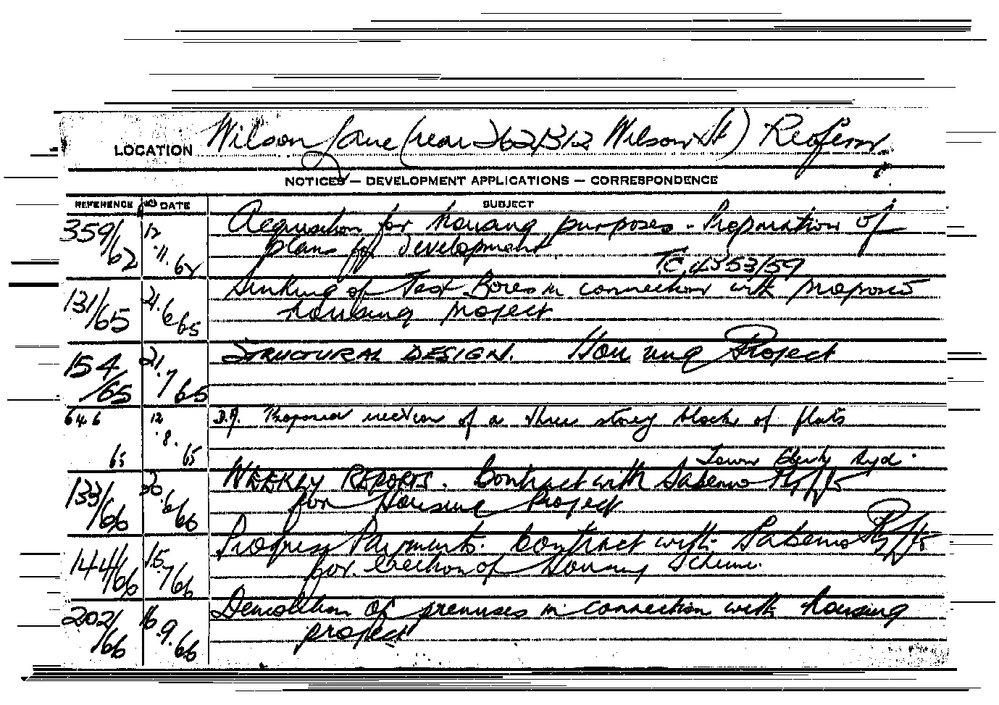 LOCATION Wilson Lane (rear 262/312 Wilson St) Redfern.
NOTICES — DEVELOPMENT APPLICATIONS — CORRESPONDENCE
REFERENCE DATE SUBJECT
359/62 12.11.62 Acquisition for housing purposes - Preparation of
plans for development
TC 4353/59
131/65 24.6.65 Sinking of Test Bores in connection with proposed
housing project
154/65 21.7.65 STRUCTURAL DESIGN. Housing Project
646/65 12.8.65 D.A. Proposed erection of a three storey block of flats
133/66 30.6.66 WEEKLY REPORTS. Contract with Sabemo Pty/Ltd
for Housing Project
144/66 15.7.66 Progress Payments. Contract with Sabemo Pty/Ltd
for erection of Housing Scheme.
202/66 16.9.66 Demolition of premises in connection with housing
project